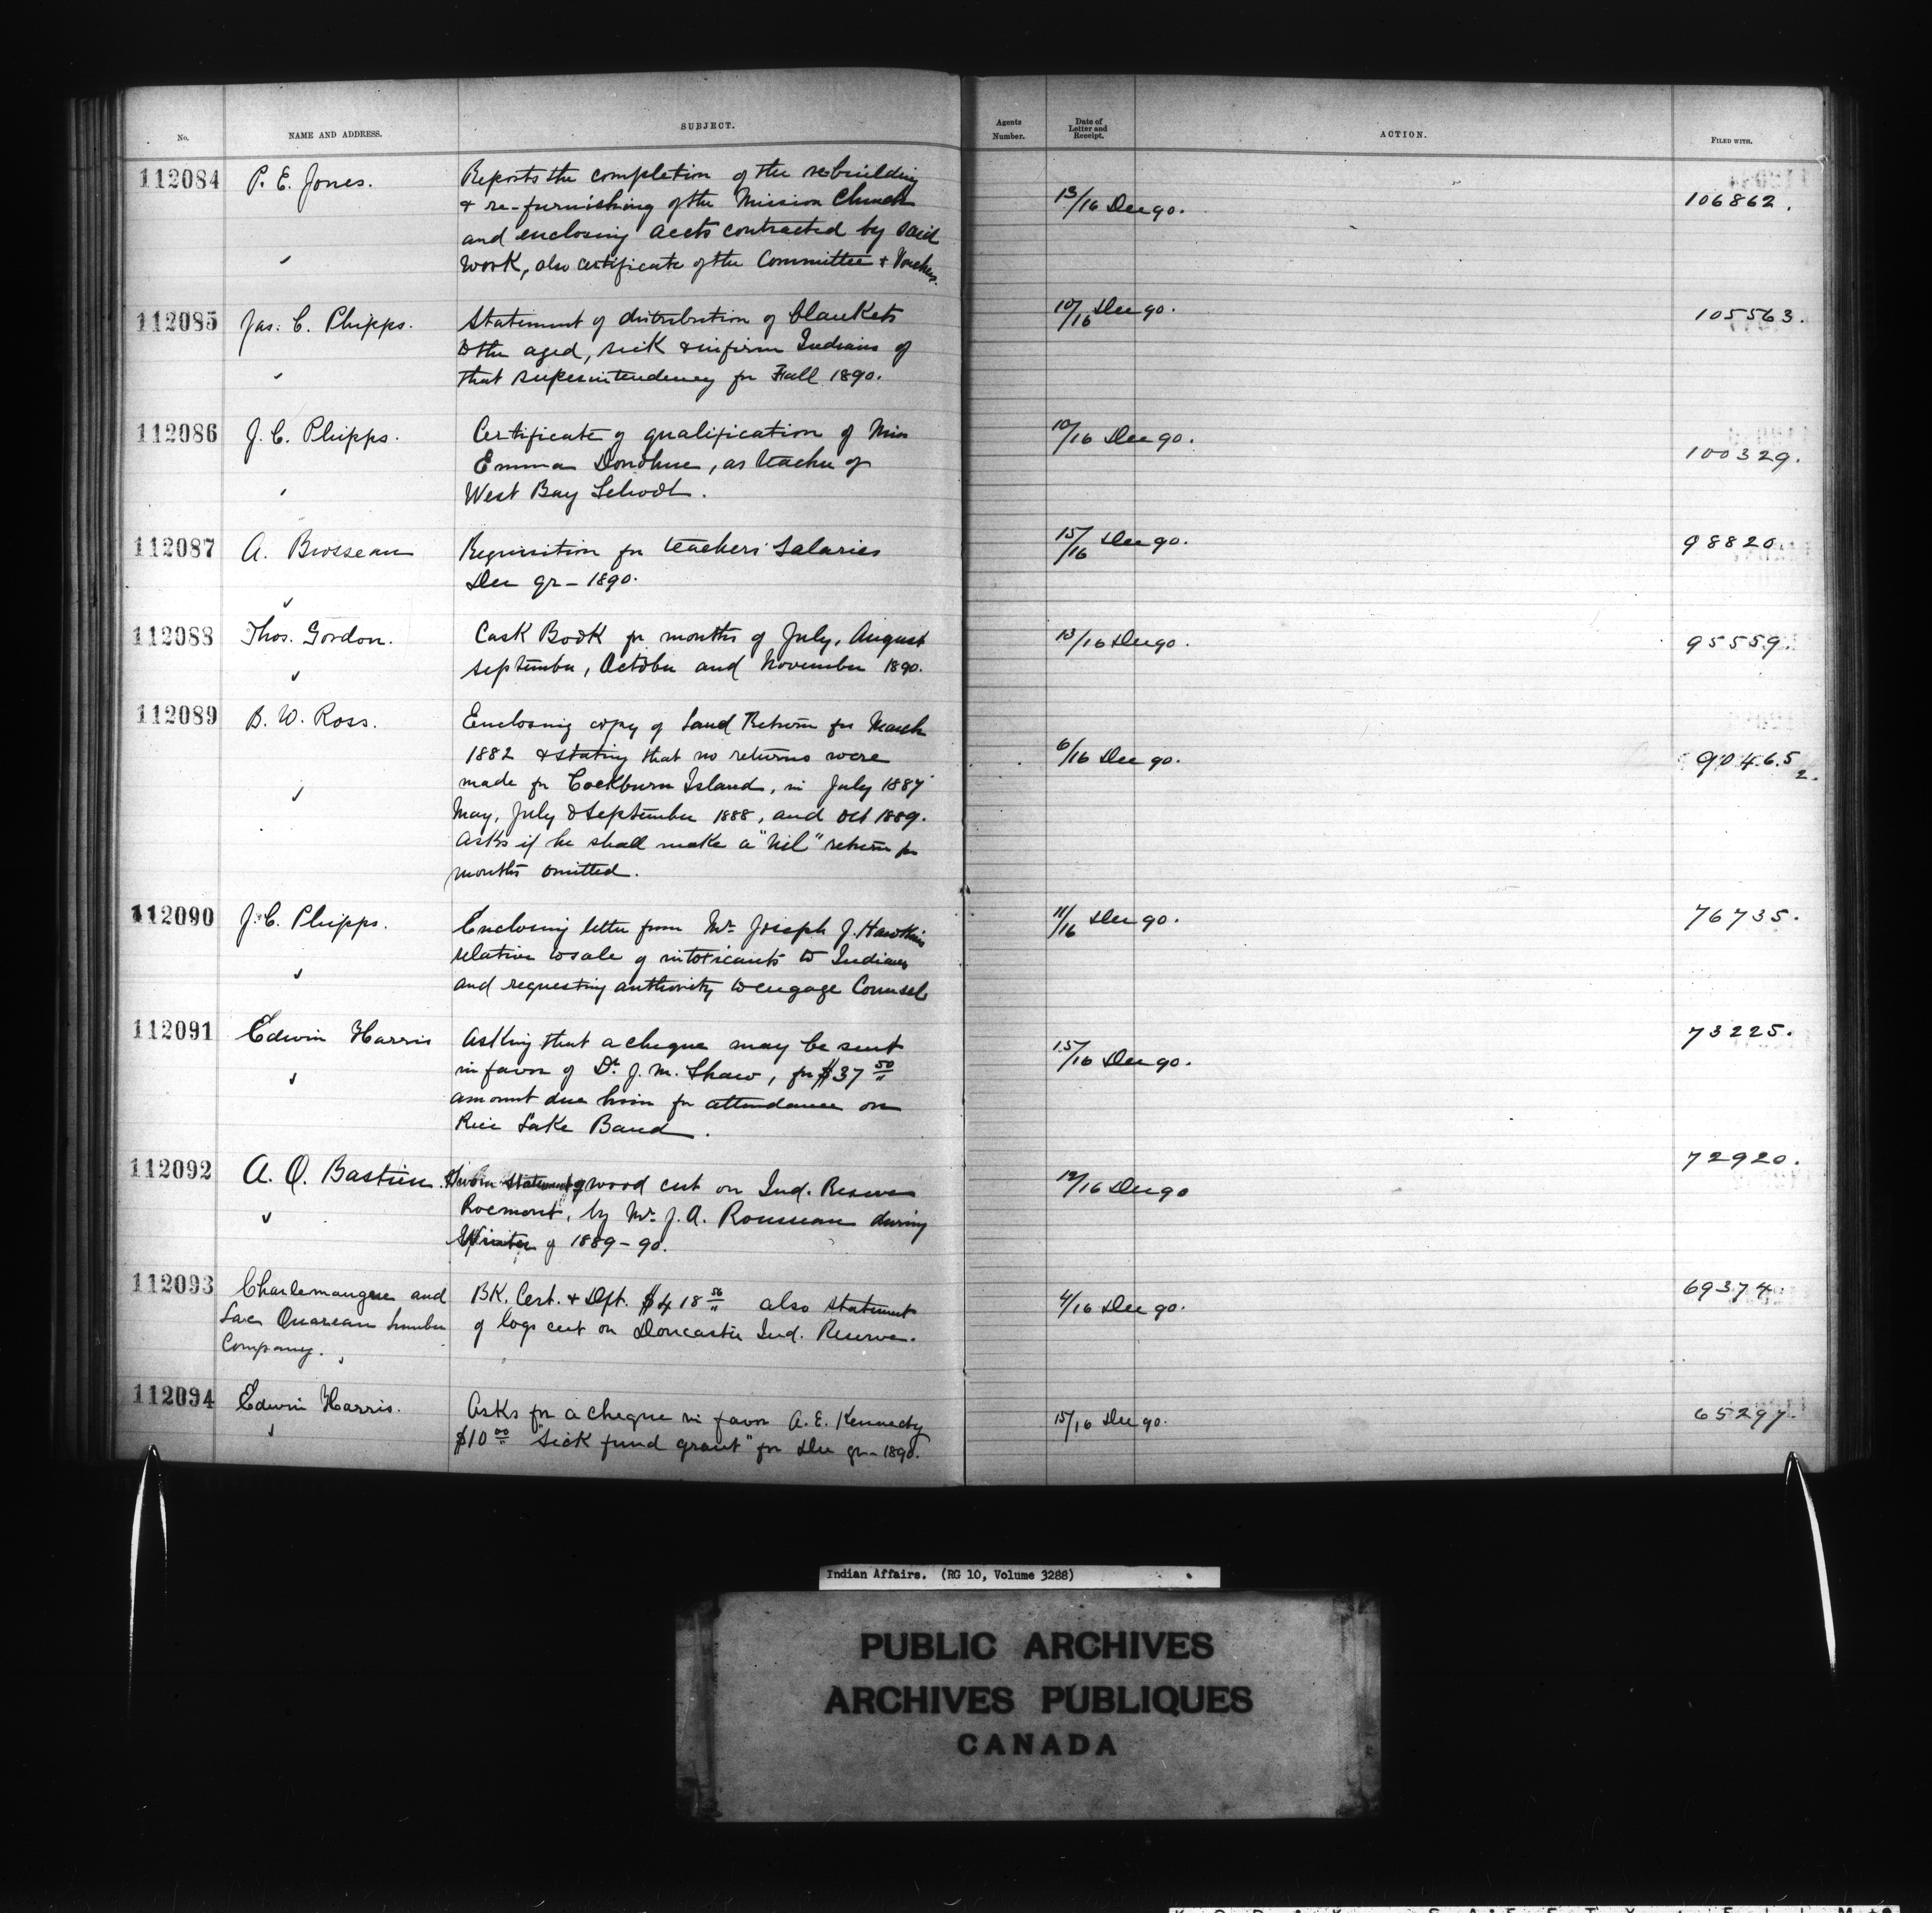 No. NAME AND ADDRESS. SUBJECT. Agents Number. Date of Letter and Receipt. ACTION. FILED WITH.
112084 P. E. Jones. Reports the completion of the rebuilding 13/16 Dec 90. 106862.
& re-furnishing of the Mission Church
and enclosing accts contracted by said
work, also certificate of the Committee & Vouchers.
112085 Jas. C. Phipps. Statement of distribution of blankets 10/16 Dec 90. 105563.
to the aged, sick & infirm Indians of
that superintendency for Fall 1890.
112086 J. C. Phipps. Certificate of qualification of Miss 10/16 Dec 90. 100329.
Emma Donohue, as teacher of
West Bay School.
112087 A. Brosseau Requisition for teachers' Salaries 15/16 Dec 90. 98820.
Dec qr - 1890.
112088 Thos. Gordon. Cash Book for months of July, August 13/16 Dec 90. 95559.
September, October and November 1890.
112089 B. W. Ross. Enclosing copy of Land Return for March 6/16 Dec 90. 90465
1882 & stating that no returns were 2.
made for Cockburn Island, in July 1887
May, July & September 1888, and Oct 1889.
Asks if he shall make a "Nil" return for
months omitted.
112090 J. C. Phipps. Enclosing letter from Mr. Joseph J. Hawkins 11/16 Dec 90. 76735.
relative to sale of intoxicants to Indians
and requesting authority to engage Counsel
112091 Edwin Harris Asking that a cheque may be sent 15/16 Dec 90. 73225.
in favor of Dr. J. M. Shaw, for $37 50
amount due him for attendance on
Rice Lake Band.
112092 A. O. Bastien. Sworn statement of wood cut on Ind. Reserve 12/16 Dec 90 72920.
Rocmont, by Mr. J. A. Rousseau during
Winter of 1889-90.
112093 Charlemangue and BK. Cert. & Dft. $418 56 also statement 4/16 Dec 90. 69374.
Lac Ouareau Lumber of logs cut on Doncaster Ind. Reserve.
Company.
112094 Edwin Harris. Asks for a cheque in favor A. E. Kennedy 15/16 Dec 90. 65297.
$10 00 "Sick fund grant" for Dec qr - 1890.
Indian Affairs. (RG 10, Volume 3288)
PUBLIC ARCHIVES
ARCHIVES PUBLIQUES
CANADA